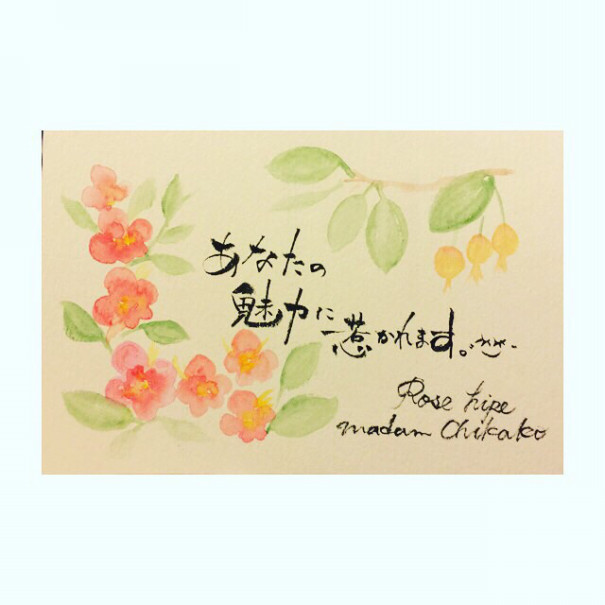 あなたの
魅力に
惹かれます。
Rose hipe
madam Chikako